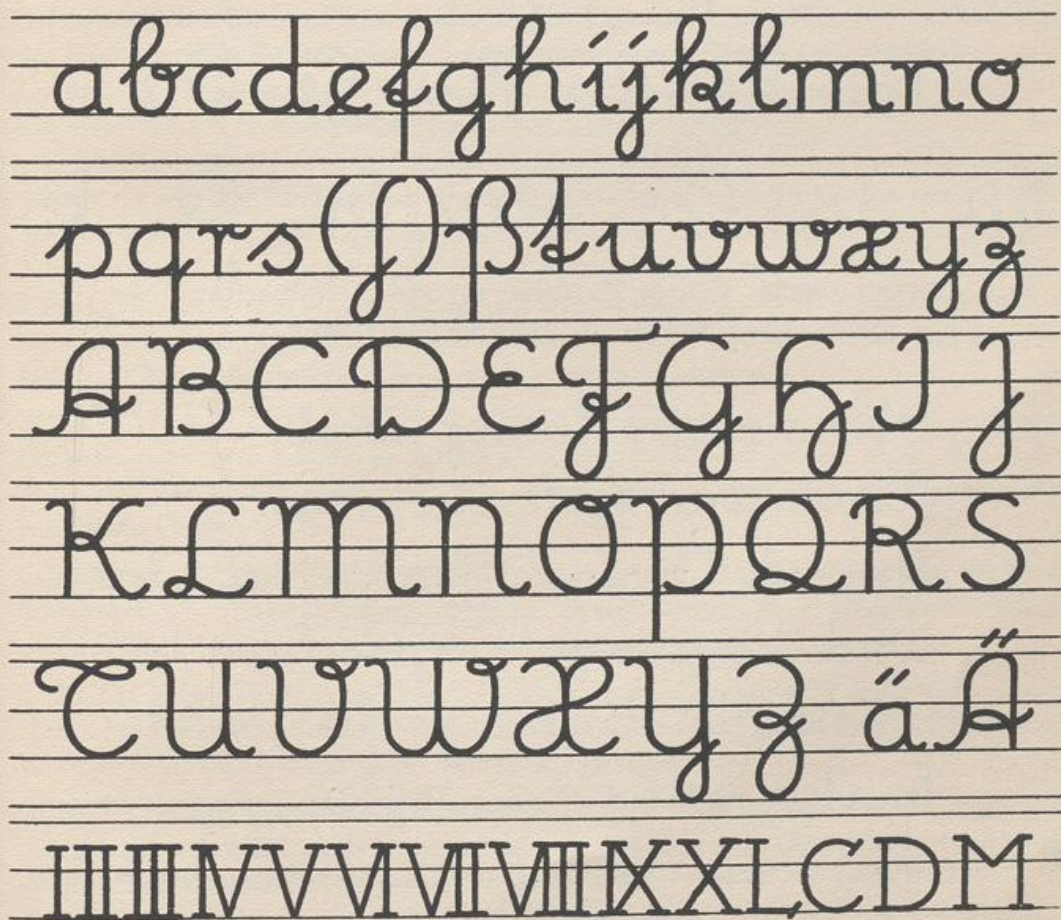 a b c d e f g h i j k l m n o
p q r s (ſ) ß t u v w x y z
A B C D E F G H I J
K L M N O P Q R S
T U V W X Y Z ä Ä
I II III IV V VI VII VIII IX X L C D M